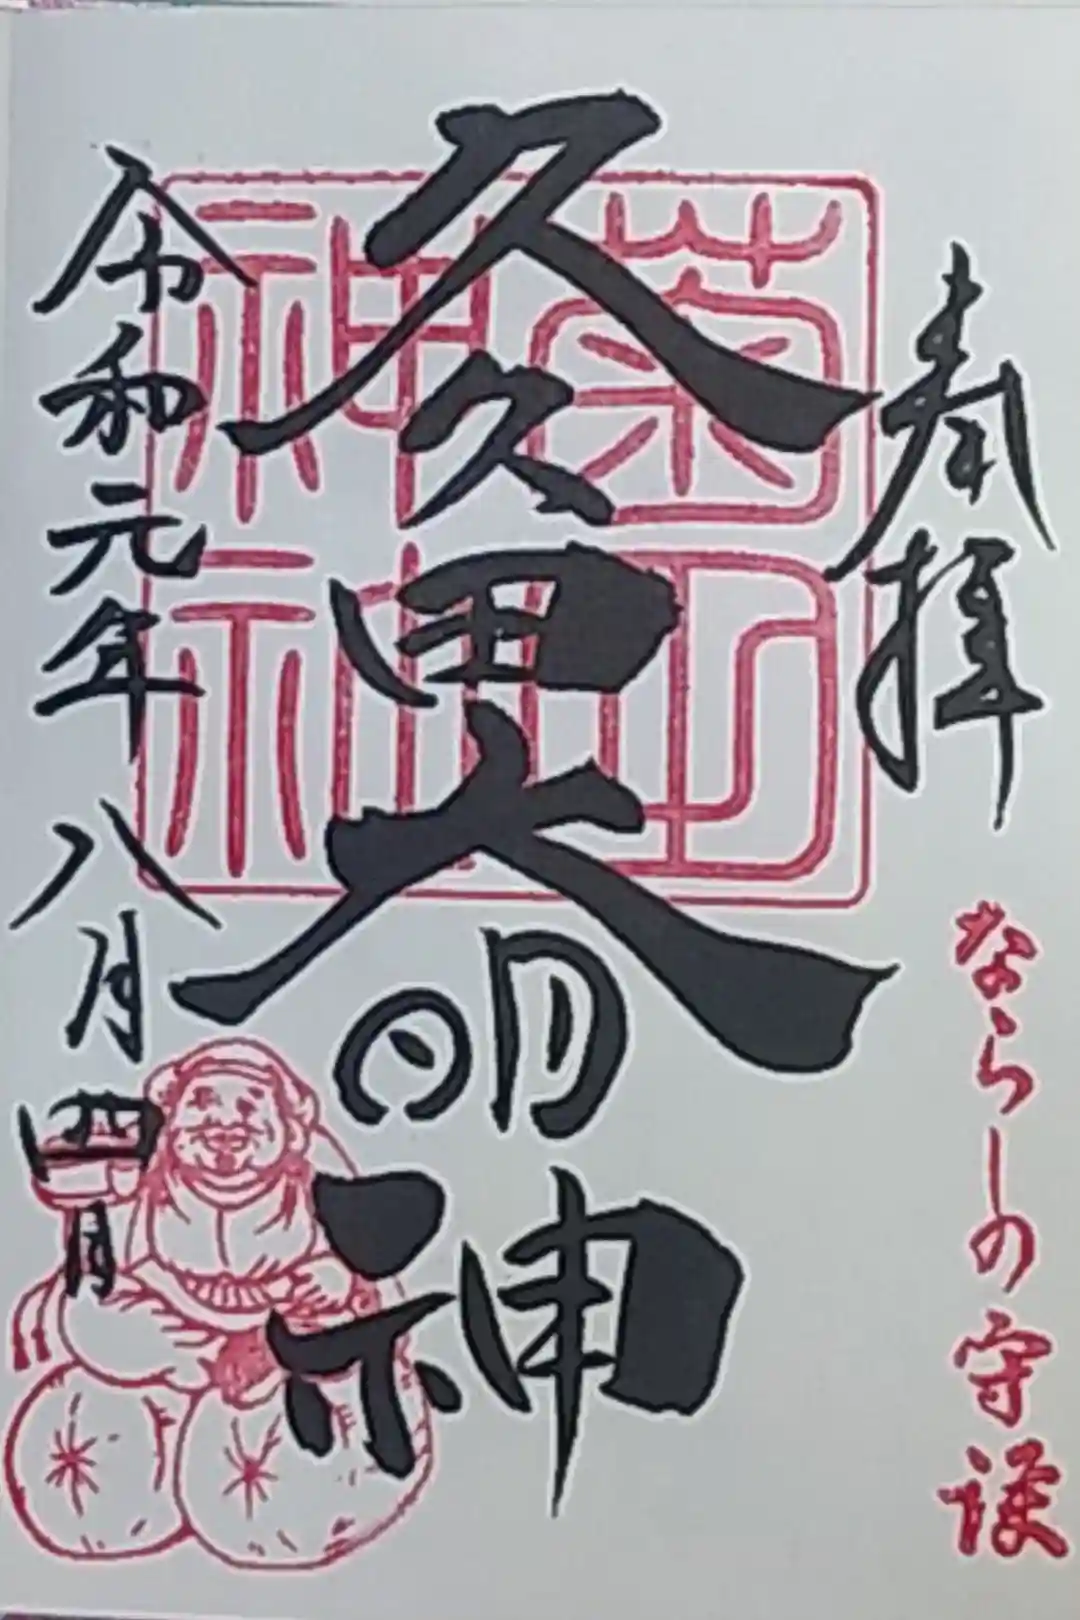 奉拝
ならしの守護
菊田
神社
久久田大明神
令和元年八月四日